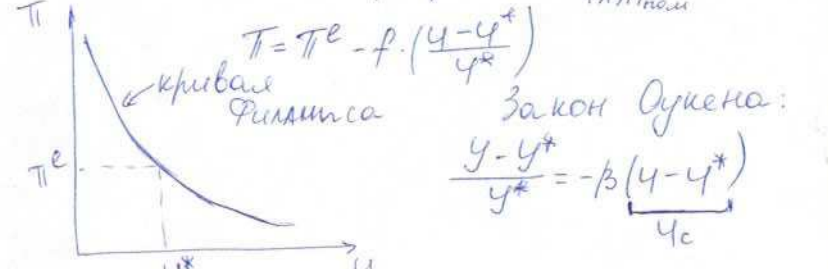 π
π = πᵉ - f·(u-u*/u*)
кривая
Филлипса
πᵉ
Закон Оукена:
y-y*/y* = -β(u-u*)
uc
u*
u